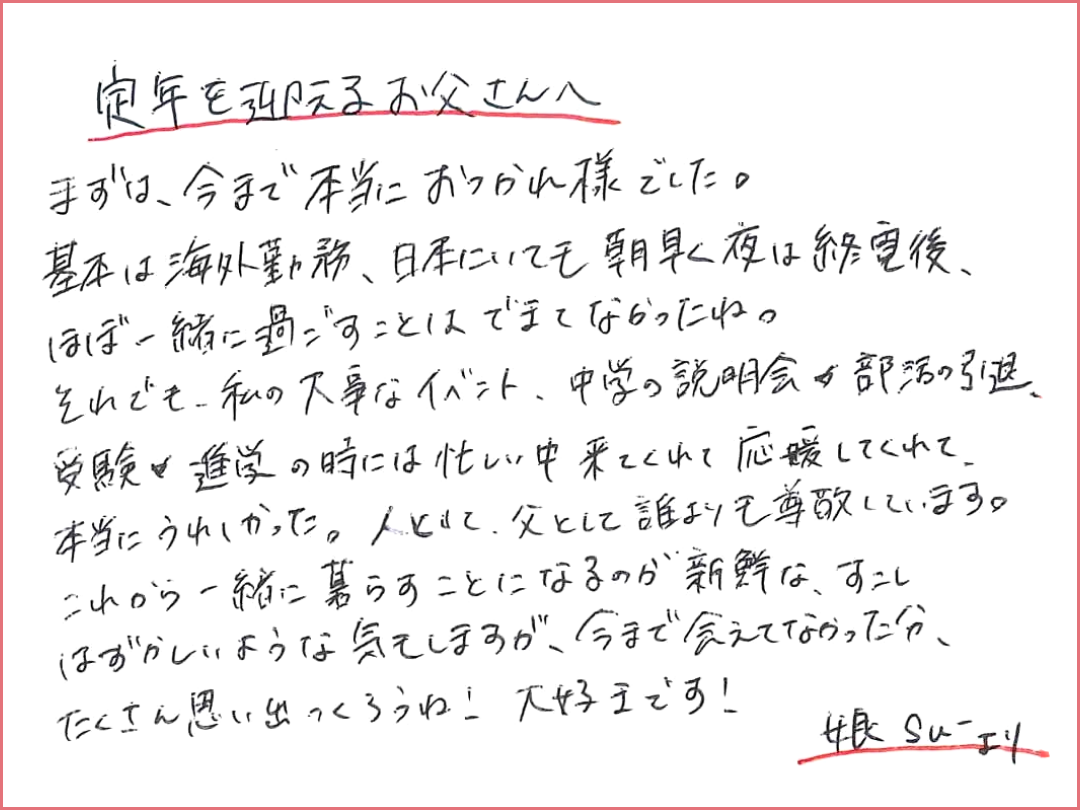 定年を迎えるお父さんへ
まずは、今まで本当におつかれ様でした。
基本は海外勤務、日本にいても朝早く夜は終電後、
ほぼ一緒に過ごすことはできてなかったね。
それでも、私の大事なイベント、中学の説明会や部活の引退、
受験や進学の時には忙しい中来てくれて応援してくれて、
本当にうれしかった。人として、父として誰よりも尊敬しています。
これから一緒に暮らすことになるのが新鮮な、すこし
はずかしいような気もしますが、今まで会えてなかった分、
たくさん思い出つくろうね！大好きです！
娘 Suーより